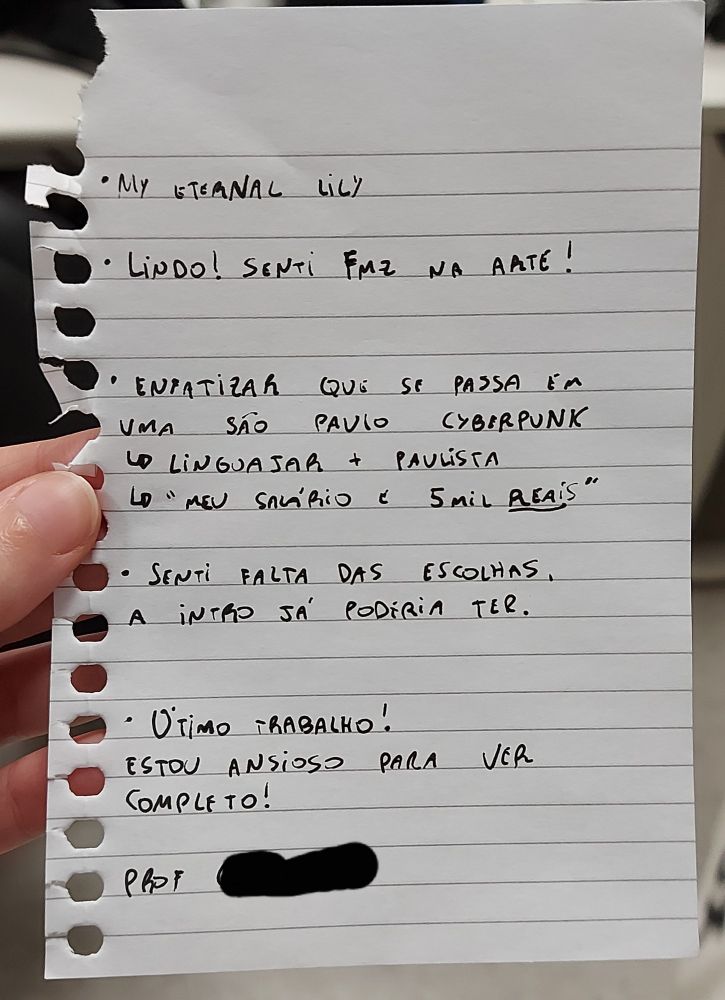 • MY ETERNAL LILY
• LINDO! SENTI FMZ NA ARTE!
• ENFATIZAR QUE SE PASSA EM
UMA SÃO PAULO CYBERPUNK
↳ LINGUAJAR + PAULISTA
↳ "MEU SALÁRIO É 5 MIL REAIS"
• SENTI FALTA DAS ESCOLHAS,
A INTRO JÁ PODERIA TER.
• ÓTIMO TRABALHO!
ESTOU ANSIOSO PARA VER
COMPLETO!
PROF